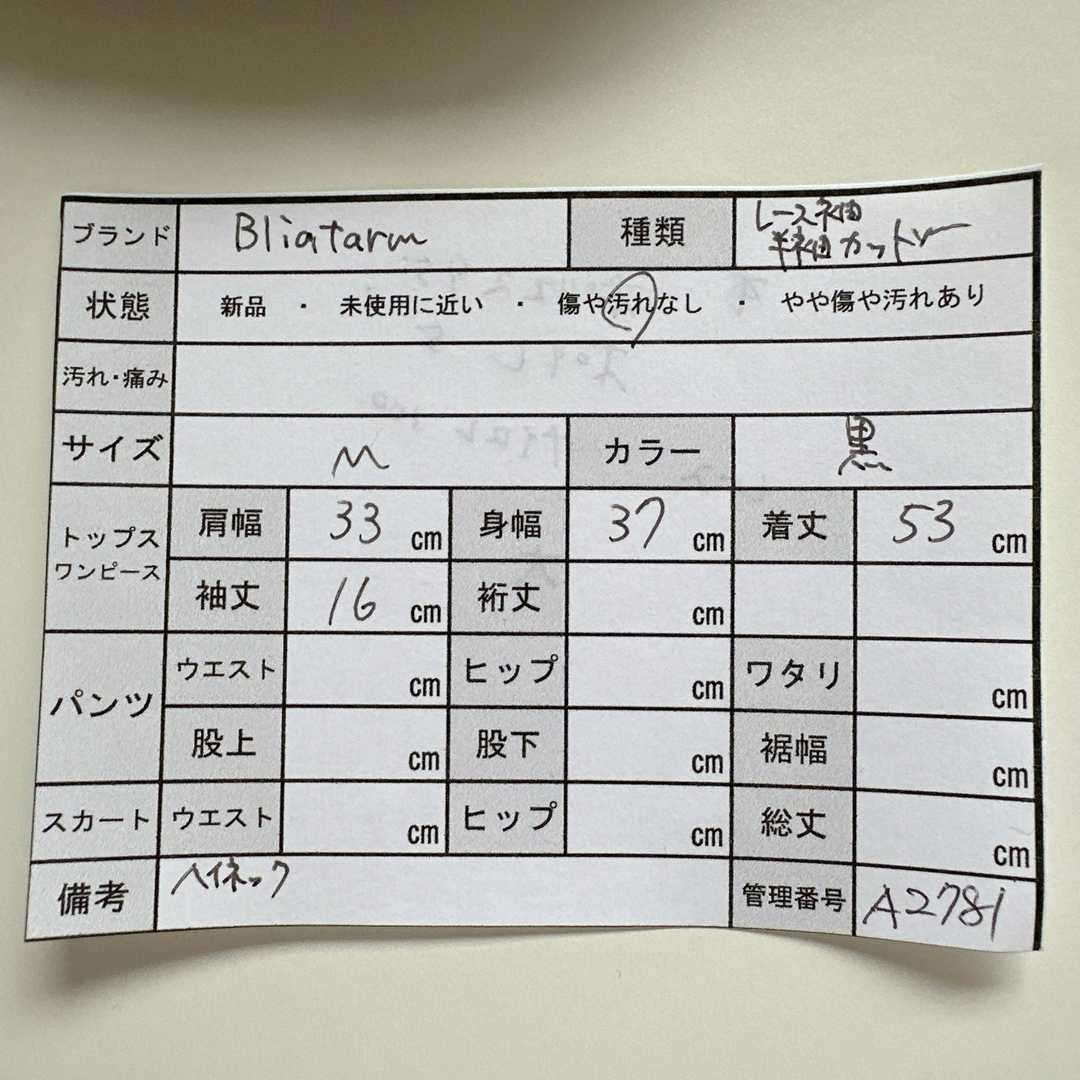 ブランド Bliatarm 種類 レース袖
半袖カットソー
状態 新品 ・ 未使用に近い ・ 傷や汚れなし ・ やや傷や汚れあり
汚れ・痛み
サイズ M カラー 黒
トップス
ワンピース
肩幅 33 cm 身幅 37 cm 着丈 53 cm
袖丈 16 cm 裄丈 cm
パンツ
ウエスト cm ヒップ cm ワタリ cm
股上 cm 股下 cm 裾幅 cm
スカート ウエスト cm ヒップ cm 総丈 cm
備考 ハイネック 管理番号 A2781